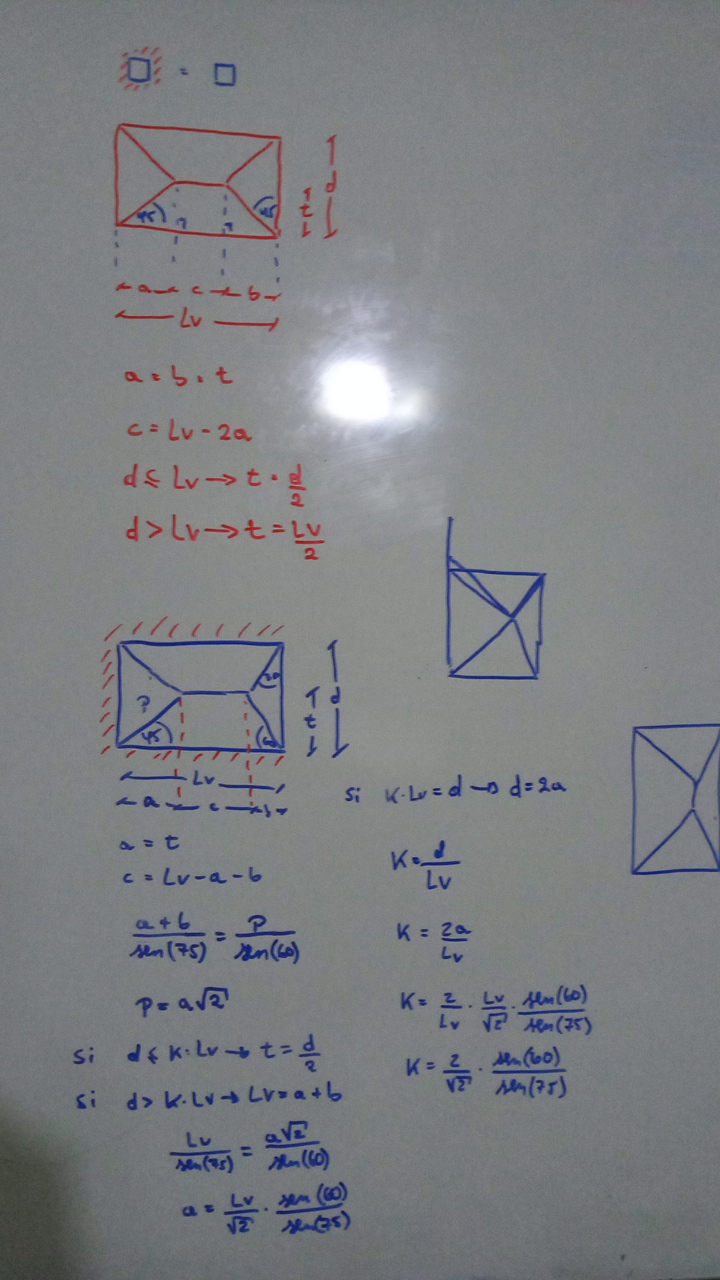 =
45
45
t
d
a c b
Lv
a = b = t
c = Lv - 2a
d ≤ Lv → t = d/2
d > Lv → t = Lv/2
?
45
t
d
Lv
a c b
a = t
c = Lv - a - b
(a + b)/sen(75) = P/sen(60)
P = a√2
si d ≤ K·Lv → t = d/2
si d > K·Lv → Lv = a + b
Lv/sen(75) = a√2/sen(60)
a = Lv/√2 · sen(60)/sen(75)
si K·Lv = d → d = 2a
K = d/Lv
K = 2a/Lv
K = 2/Lv · Lv/√2 · sen(60)/sen(75)
K = 2/√2 · sen(60)/sen(75)